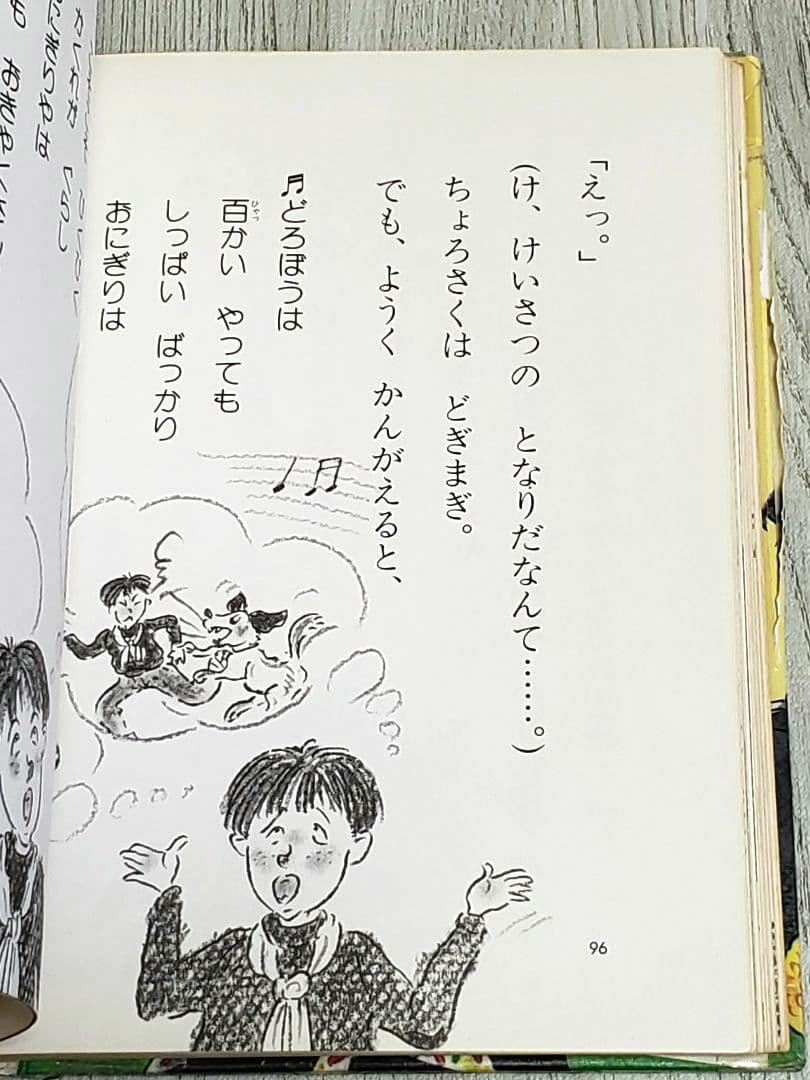 「えっ。」
(け、けいさつの となりだなんて……。)
ちょろさくは どぎまぎ。
でも、ようく かんがえると、
♬どろぼうは
百かい やっても
ひゃっ
しっぱい ばっかり
おにぎりは
96